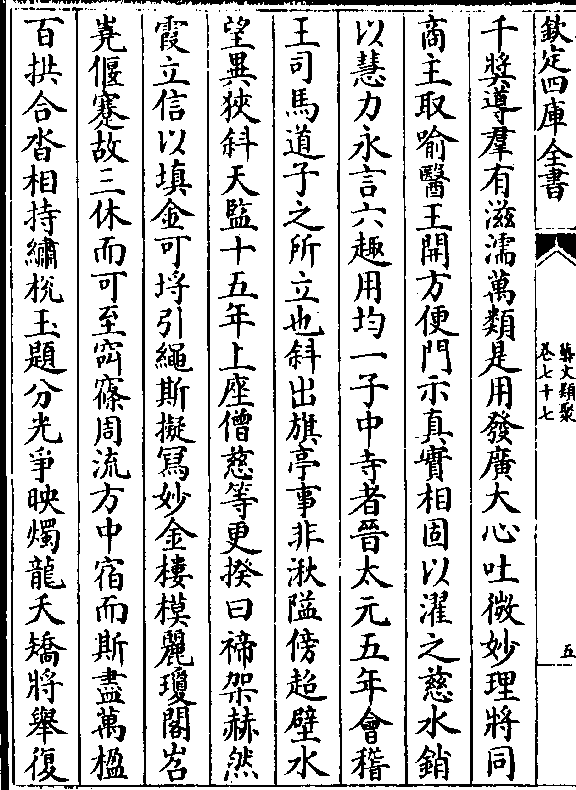 欽定四庫全書
藝文類聚
卷七十七
五
千奬導羣有滋濡萬類是用發廣大心吐微妙理將同
商主取喻醫王開方便門示真實相固以濯之慈水銷
以慧力永言六趣用均一子中寺者晉太元五年會稽
王司馬道子之所立也斜出旗亭事非湫隘傍超壁水
望異狹斜天監十五年上座僧慈等更揆日禘架赫然
霞立信以填金可埒引繩斯擬冩妙金棲模麗瓊閣岧
嶤偃蹇故三休而可至窱周流方中宿而斯盡萬楹
百拱合沓相持繡桄玉題分光爭映燭龍夭矯將舉復